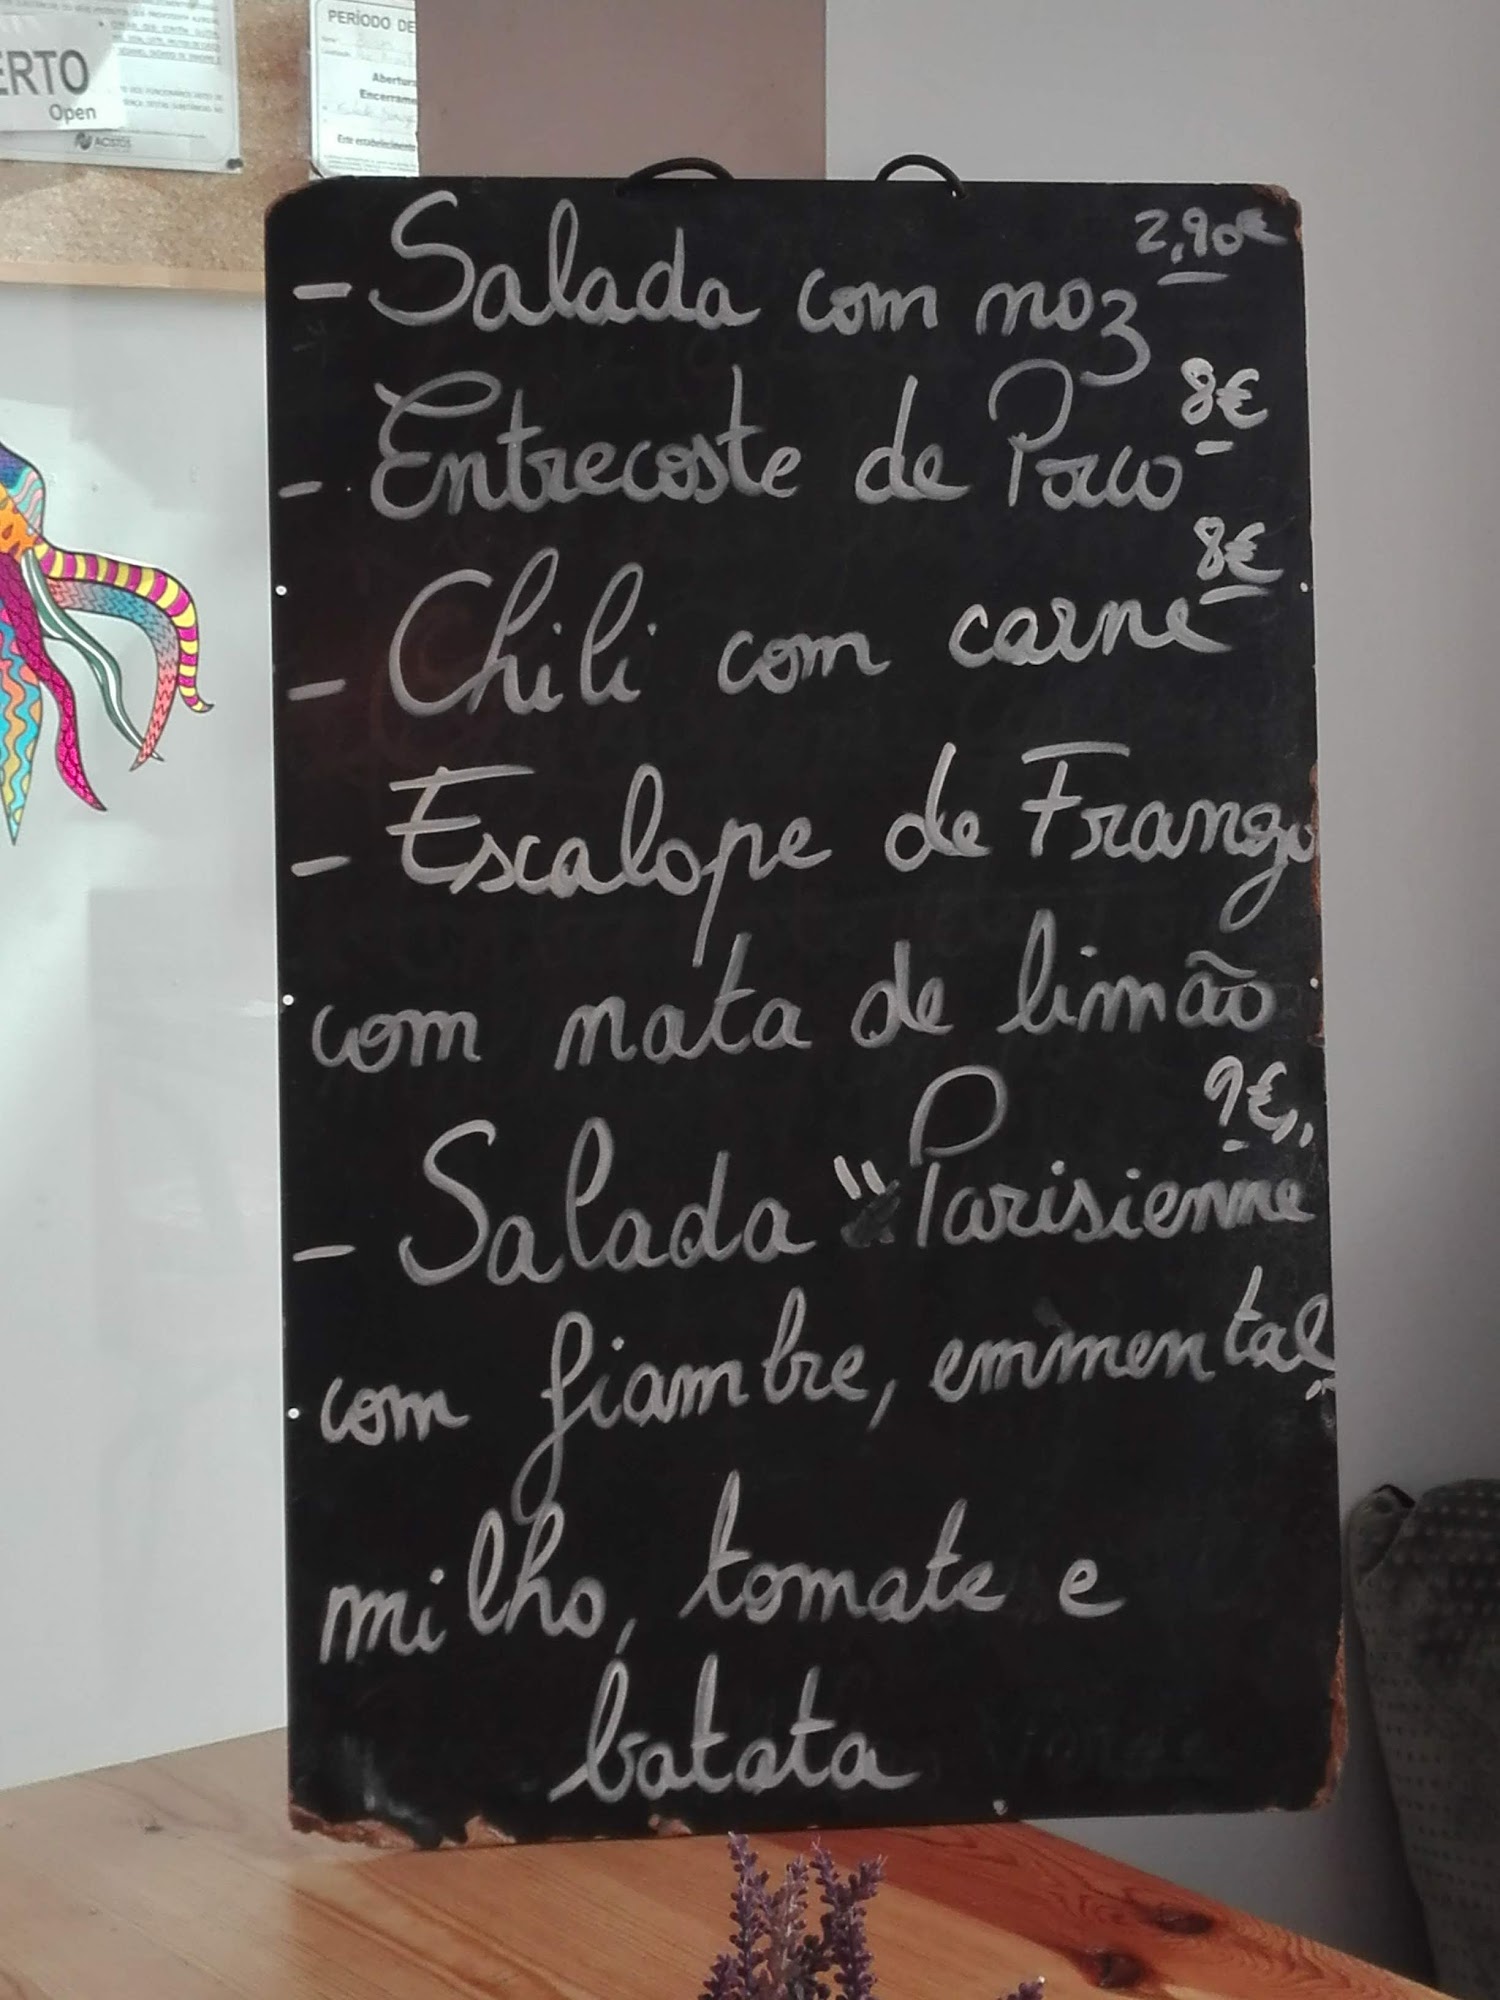 ERTO
Open
ACISTDS
PERÍODO DE
Abertura
Encerrame
Este estabelecimento
2,90€
- Salada com noz
8€
- Entrecoste de Porco
8€
- Chili com carne
- Escalope de Frango
com nata de limão
9€
- Salada "Parisienne"
com fiambre, emmental,
milho, tomate e
batata